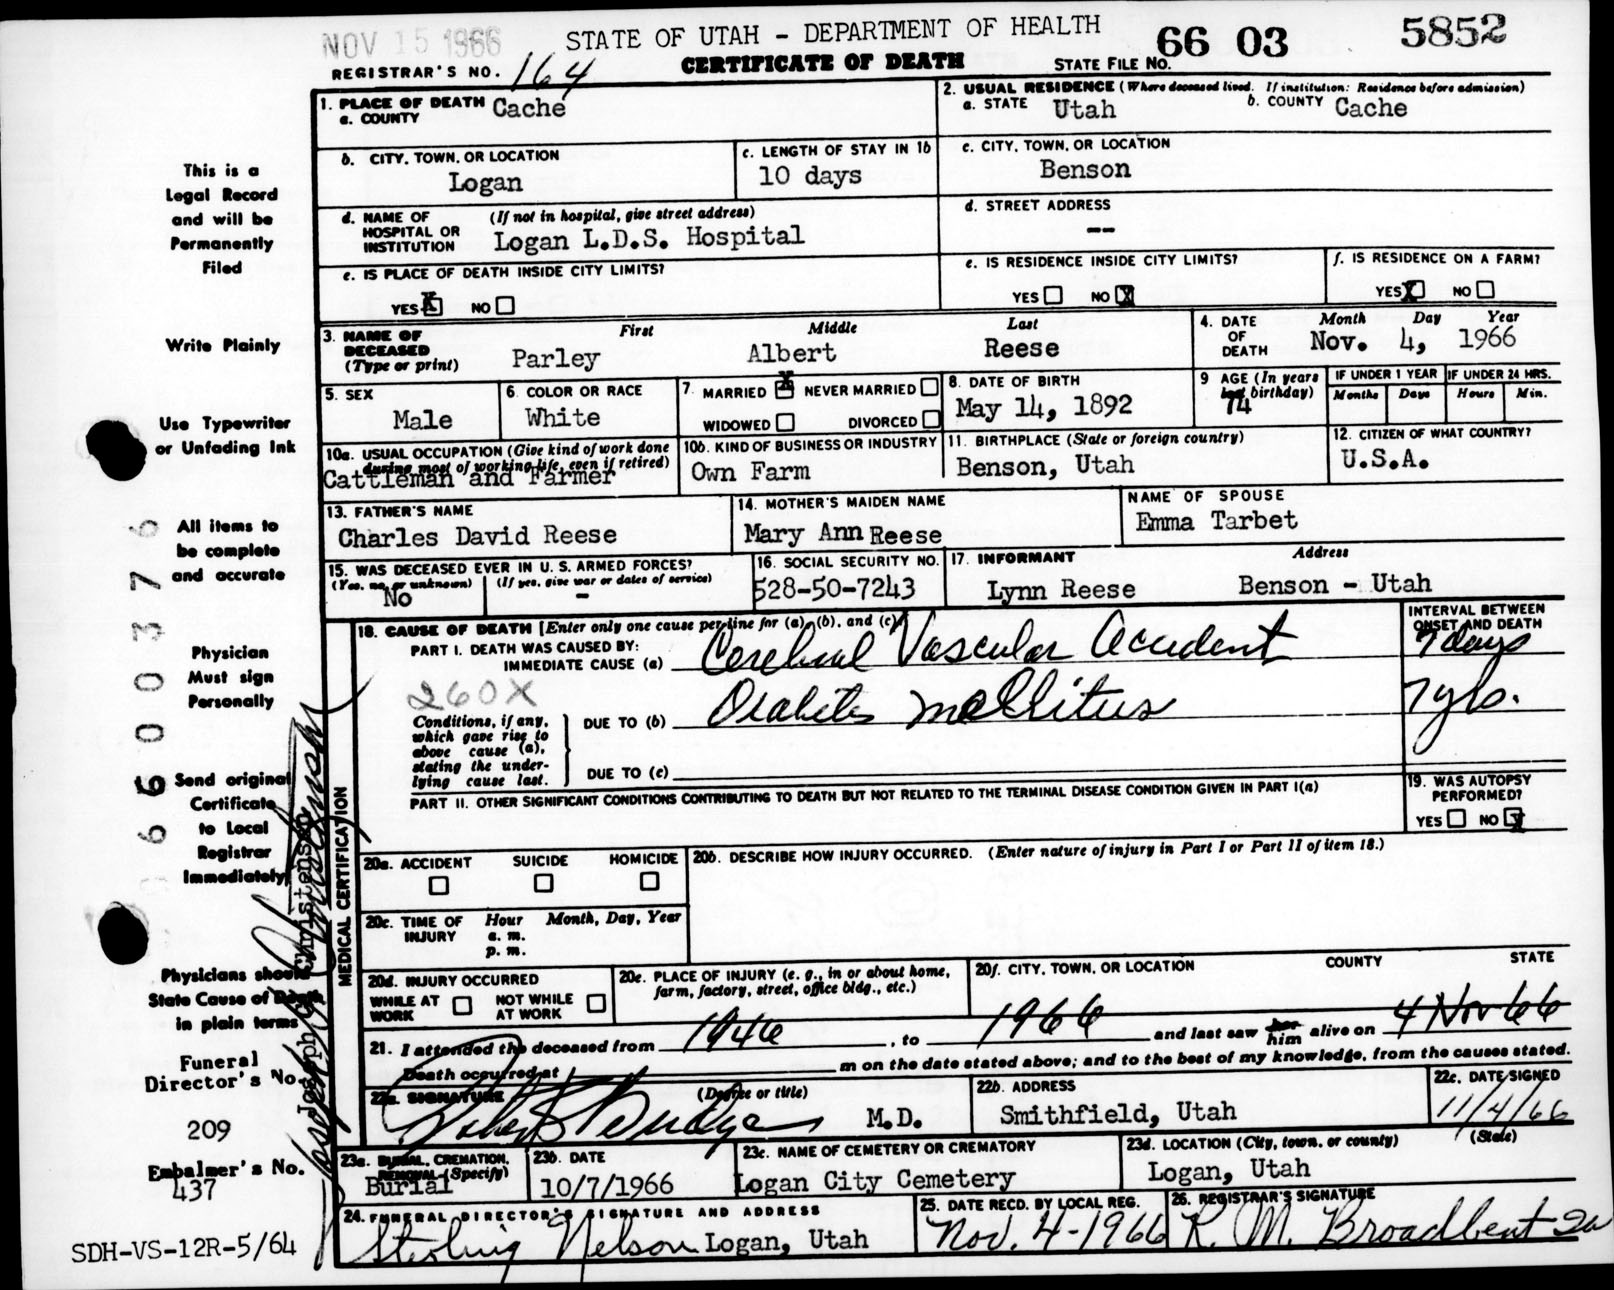 NOV 15 1966
STATE OF UTAH - DEPARTMENT OF HEALTH
CERTIFICATE OF DEATH
66 03 5852
REGISTRAR'S NO. 164
STATE FILE NO.
1. PLACE OF DEATH
a. COUNTY Cache
2. USUAL RESIDENCE (Where deceased lived. If institution: Residence before admission)
a. STATE Utah b. COUNTY Cache
b. CITY, TOWN, OR LOCATION
Logan
c. LENGTH OF STAY IN 1b
10 days
c. CITY, TOWN, OR LOCATION
Benson
d. NAME OF HOSPITAL OR INSTITUTION (If not in hospital, give street address)
Logan L.D.S. Hospital
d. STREET ADDRESS
--
e. IS PLACE OF DEATH INSIDE CITY LIMITS?
YES X NO
e. IS RESIDENCE INSIDE CITY LIMITS?
YES NO X
f. IS RESIDENCE ON A FARM?
YES X NO
3. NAME OF DECEASED (Type or print)
First Middle Last
Parley Albert Reese
4. DATE OF DEATH
Month Day Year
Nov. 4, 1966
5. SEX
Male
6. COLOR OR RACE
White
7. MARRIED X NEVER MARRIED
WIDOWED DIVORCED
8. DATE OF BIRTH
May 14, 1892
9 AGE (In years last birthday)
74
IF UNDER 1 YEAR
Months Days
IF UNDER 24 HRS.
Hours Min.
10a. USUAL OCCUPATION (Give kind of work done during most of working life, even if retired)
Cattleman and Farmer
10b. KIND OF BUSINESS OR INDUSTRY
Own Farm
11. BIRTHPLACE (State or foreign country)
Benson, Utah
12. CITIZEN OF WHAT COUNTRY?
U.S.A.
13. FATHER'S NAME
Charles David Reese
14. MOTHER'S MAIDEN NAME
Mary Ann Reese
NAME OF SPOUSE
Emma Tarbet
15. WAS DECEASED EVER IN U. S. ARMED FORCES?
(Yes, no, or unknown) (If yes, give war or dates of service)
No -
16. SOCIAL SECURITY NO.
528-50-7243
17. INFORMANT Address
Lynn Reese Benson - Utah
MEDICAL CERTIFICATION
18. CAUSE OF DEATH [Enter only one cause per line for (a), (b), and (c)]
INTERVAL BETWEEN ONSET AND DEATH
PART I. DEATH WAS CAUSED BY:
IMMEDIATE CAUSE (a) Cerebral Vascular Accident 7 days
260X
Conditions, if any, which gave rise to above cause (a), stating the underlying cause last.
DUE TO (b) Diabetes mellitus 7 yrs.
DUE TO (c)
PART II. OTHER SIGNIFICANT CONDITIONS CONTRIBUTING TO DEATH BUT NOT RELATED TO THE TERMINAL DISEASE CONDITION GIVEN IN PART I(a)
19. WAS AUTOPSY PERFORMED?
YES NO X
20a. ACCIDENT SUICIDE HOMICIDE
20b. DESCRIBE HOW INJURY OCCURRED. (Enter nature of injury in Part I or Part II of item 18.)
20c. TIME OF INJURY Hour Month, Day, Year
a. m.
p. m.
20d. INJURY OCCURRED
WHILE AT WORK NOT WHILE AT WORK
20e. PLACE OF INJURY (e. g., in or about home, farm, factory, street, office bldg., etc.)
20f. CITY, TOWN, OR LOCATION COUNTY STATE
21. I attended the deceased from 1946, to 1966 and last saw her him alive on 4 Nov 66
Death occurred at m on the date stated above; and to the best of my knowledge, from the causes stated.
22a. SIGNATURE (Degree or title)
M.D.
22b. ADDRESS
Smithfield, Utah
22c. DATE SIGNED
11/4/66
23a. BURIAL, CREMATION, REMOVAL (Specify)
Burial
23b. DATE
10/7/1966
23c. NAME OF CEMETERY OR CREMATORY
Logan City Cemetery
23d. LOCATION (City, town, or county) (State)
Logan, Utah
24. FUNERAL DIRECTOR'S SIGNATURE AND ADDRESS
Sterling Nelson Logan, Utah
25. DATE RECD. BY LOCAL REG.
Nov. 4-1966
26. REGISTRAR'S SIGNATURE
R. M. Broadbent
This is a
Legal Record
and will be
Permanently
Filed
Write Plainly
Use Typewriter
or Unfading Ink
All items to
be complete
and accurate
Physician
Must sign
Personally
Send original
Certificate
to Local
Registrar
Immediately
Physicians should
State Cause of Death
in plain terms
Funeral
Director's No.
209
Embalmer's No.
437
SDH-VS-12R-5/64
6 6 0 0 3 7 6
Joseph Christensen